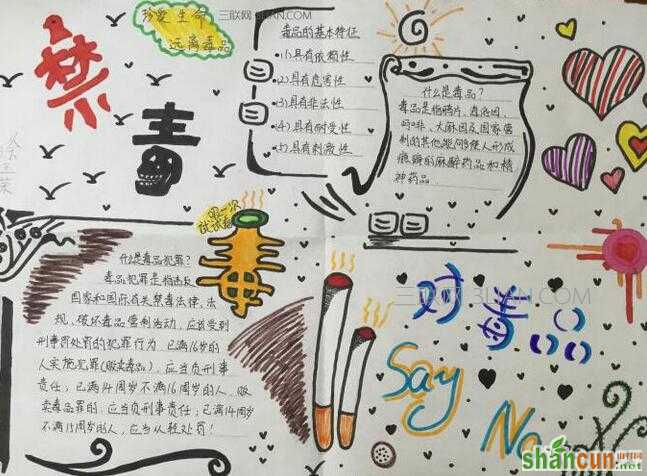 珍爱生命
远离毒品
禁毒
毒品的基本特征
(1)具有依赖性
(2)具有危害性
(3)具有非法性
(4)具有耐受性
(5)具有刺激性
什么是毒品?
毒品是指鸦片、海洛因、
吗啡、大麻及国家管
制的其他能够使人形成
瘾癖的麻醉药品和精
神药品
什么是毒品犯罪?
毒品犯罪是指违反
国家和国际有关禁毒法律、法
规,破坏毒品管制活动,应该受到
刑事罚处罚的犯罪行为 已满16岁的
人实施犯罪(贩卖毒品),应当负刑事
责任;已满14周岁不满16周岁的人,贩
卖毒品罪的,应当负刑事责任;已满14周岁
不满18周岁的人,应当从轻处罚!
对毒品
Say No
三联网 3LIAN.COM
三联网 3LIAN.COM
shancun